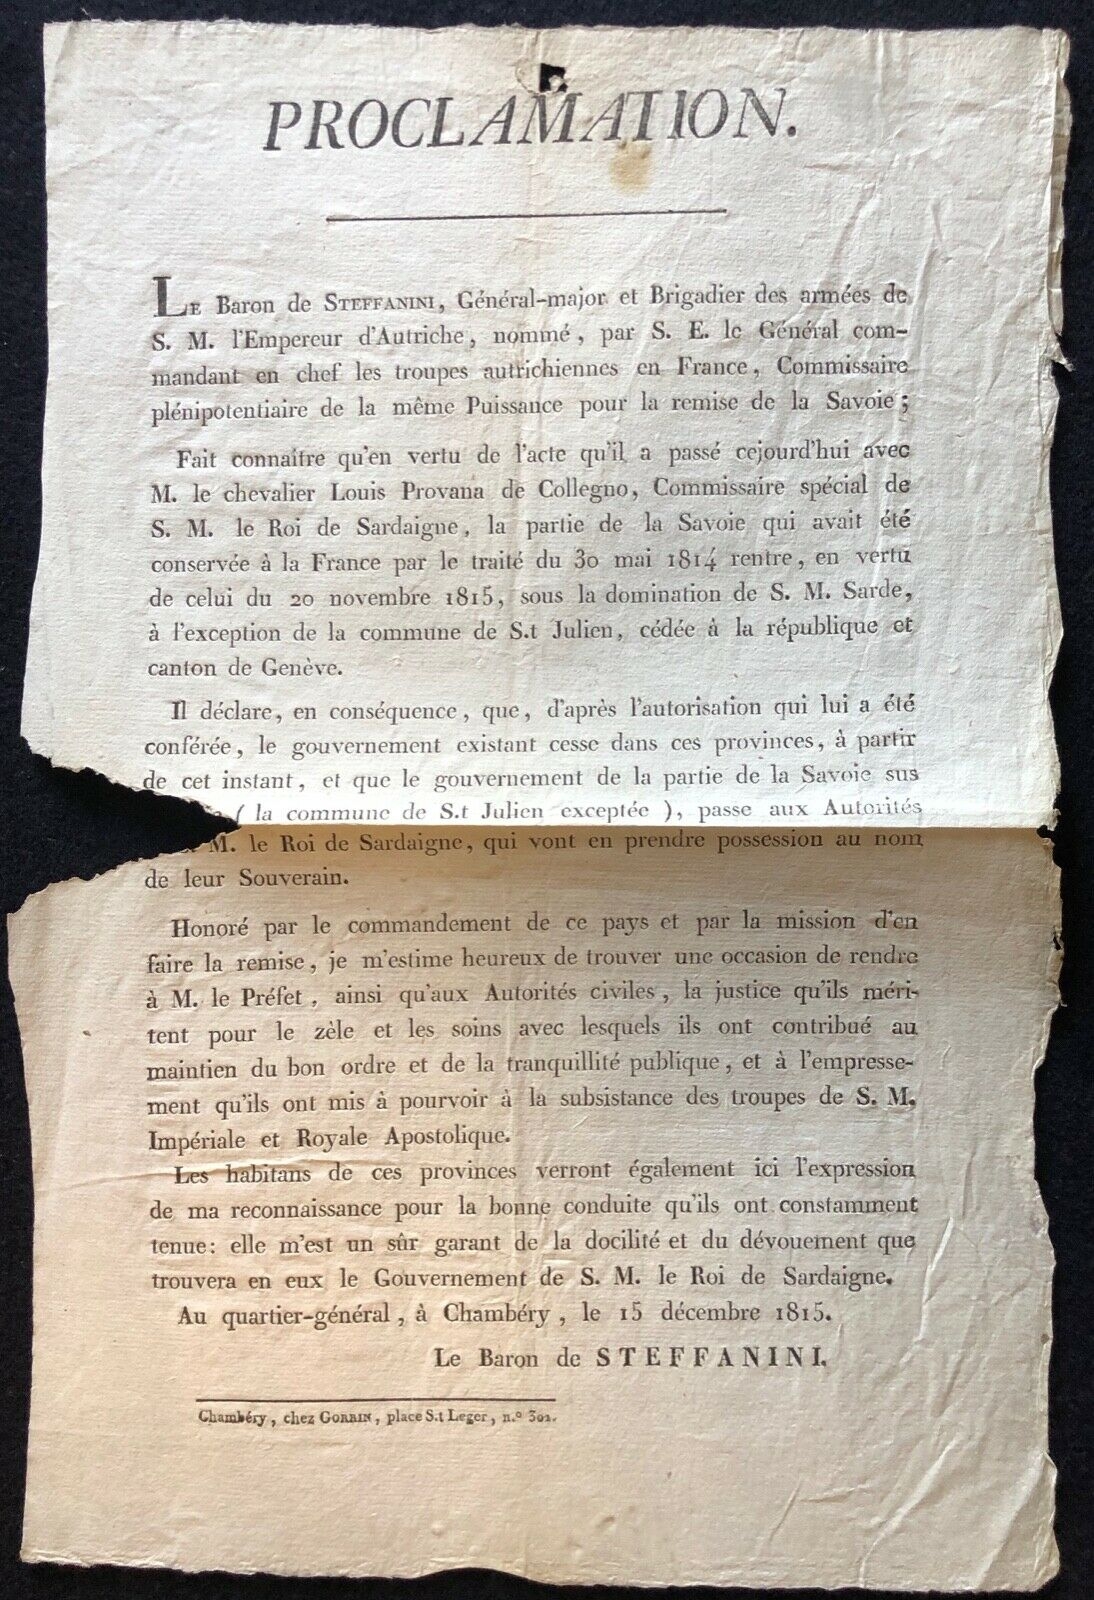 PROCLAMATION.
LE Baron de STEFFANINI, Général-major et Brigadier des armées de
S. M. l'Empereur d'Autriche, nommé, par S. E. le Général com-
mandant en chef les troupes autrichiennes en France, Commissaire
plénipotentiaire de la même Puissance pour la remise de la Savoie;
Fait connaître qu'en vertu de l'acte qu'il a passé cejourd'hui avec
M. le chevalier Louis Provana de Collegno, Commissaire spécial de
S. M. le Roi de Sardaigne, la partie de la Savoie qui avait été
conservée à la France par le traité du 30 mai 1814 rentre, en vertu
de celui du 20 novembre 1815, sous la domination de S. M. Sarde,
à l'exception de la commune de S.t Julien, cédée à la république et
canton de Genève.
Il déclare, en conséquence, que, d'après l'autorisation qui lui a été
conférée, le gouvernement existant cesse dans ces provinces, à partir
de cet instant, et que le gouvernement de la partie de la Savoie sus
(la commune de S.t Julien exceptée), passe aux Autorités
M. le Roi de Sardaigne, qui vont en prendre possession au nom
de leur Souverain.
Honoré par le commandement de ce pays et par la mission d'en
faire la remise, je m'estime heureux de trouver une occasion de rendre
à M. le Préfet, ainsi qu'aux Autorités civiles, la justice qu'ils méri-
tent pour le zèle et les soins avec lesquels ils ont contribué au
maintien du bon ordre et de la tranquillité publique, et à l'empresse-
ment qu'ils ont mis à pourvoir à la subsistance des troupes de S. M.
Impériale et Royale Apostolique.
Les habitans de ces provinces verront également ici l'expression
de ma reconnaissance pour la bonne conduite qu'ils ont constamment
tenue: elle m'est un sûr garant de la docilité et du dévouement que
trouvera en eux le Gouvernement de S. M. le Roi de Sardaigne.
Au quartier-général, à Chambéry, le 15 décembre 1815.
Le Baron de STEFFANINI.
Chambéry, chez GORRIN, place S.t Leger, n.o 302.